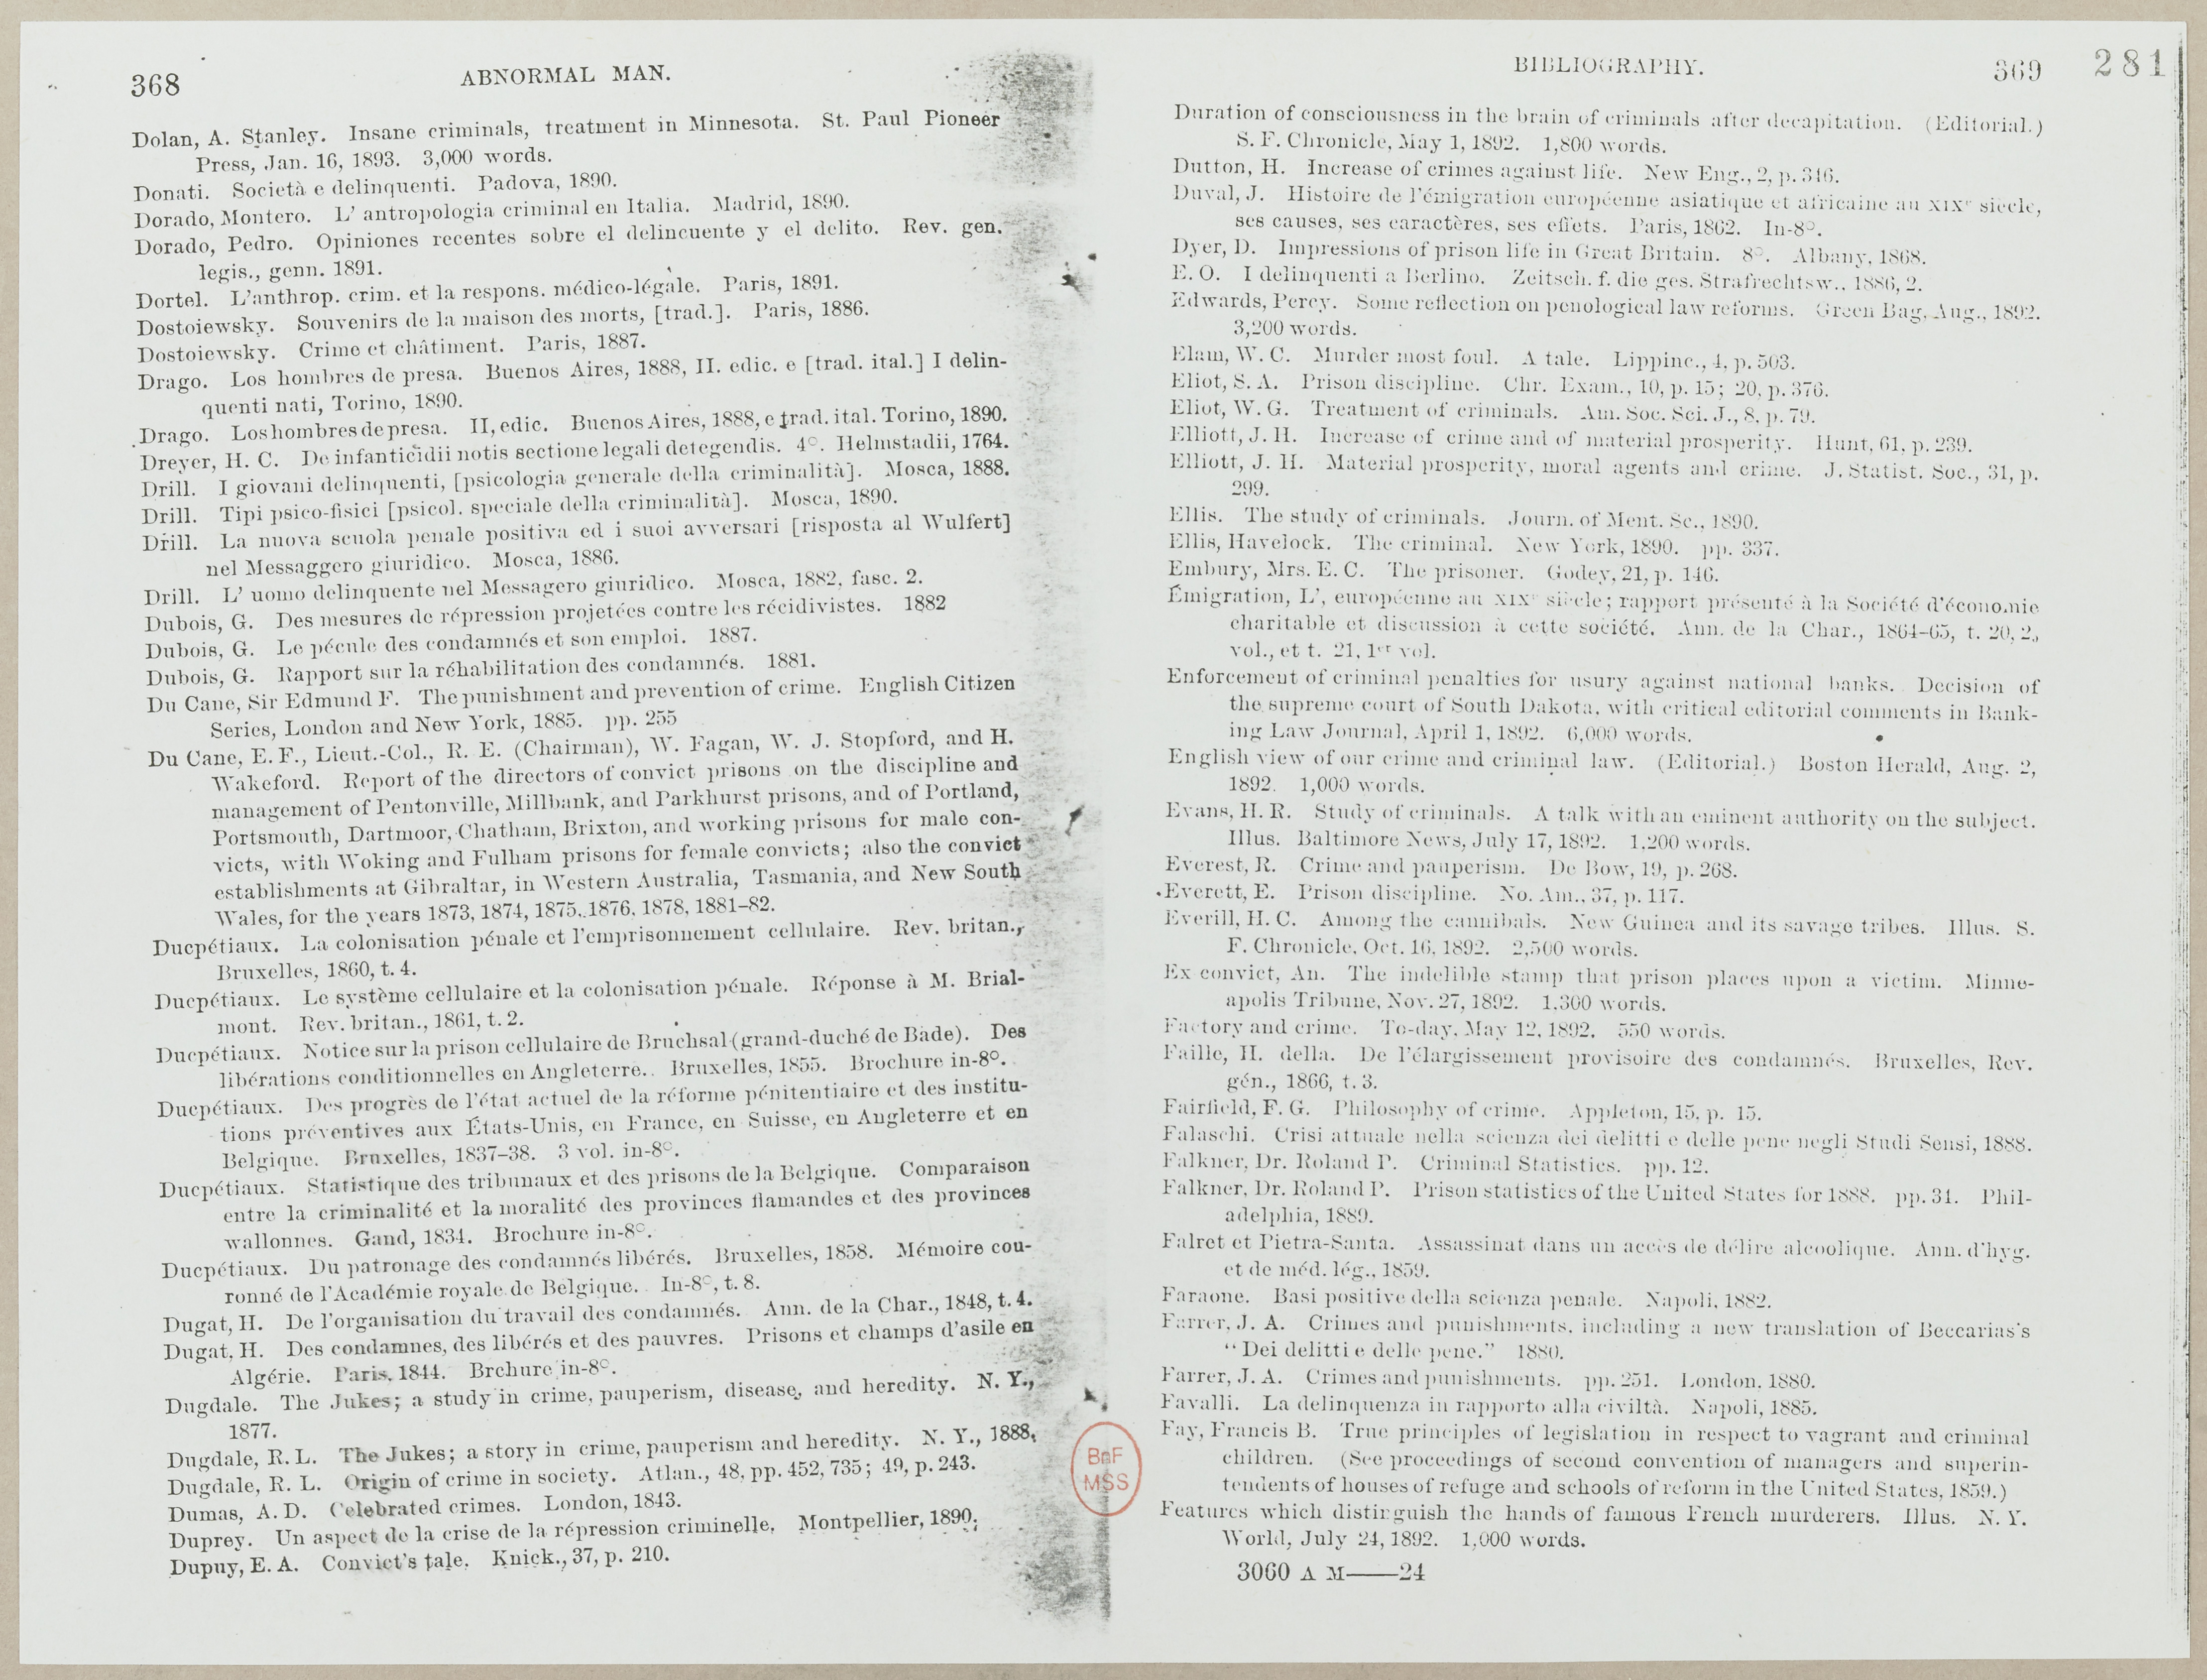 368
ABNORMAL MAN.
Dolan, A. Stanley. Insane criminals, treatment in Minnesota. St. Paul Pioneer
Press, Jan. 16, 1893. 3,000 words.
Donati. Società e delinquenti. Padova, 1890.
Dorado, Montero. L' antropologia criminal en Italia. Madrid, 1890.
Dorado, Pedro. Opiniones recentes sobre el delincuente y el delito. Rev. gen.
legis., genn. 1891.
Dortel. L'anthrop. crim. et la respons. médico-légale. Paris, 1891.
Dostoiewsky. Souvenirs de la maison des morts, [trad.]. Paris, 1886.
Dostoiewsky. Crime et châtiment. Paris, 1887.
Drago. Los hombres de presa. Buenos Aires, 1888, II. edic. e [trad. ital.] I delin-
quenti nati, Torino, 1890.
Drago. Los hombres de presa. II, edic. Buenos Aires, 1888, e trad. ital. Torino, 1890.
Dreyer, H. C. De infanticidii notis sectione legali detegendis. 4°. Helmstadii, 1764.
Drill. I giovani delinquenti, [psicologia generale della criminalità]. Mosca, 1888.
Drill. Tipi psico-fisici [psicol. speciale della criminalità]. Mosca, 1890.
Drill. La nuova scuola penale positiva ed i suoi avversari [risposta al Wulfert]
nel Messaggero giuridico. Mosca, 1886.
Drill. L' uomo delinquente nel Messagero giuridico. Mosca, 1882, fasc. 2.
Dubois, G. Des mesures de répression projetées contre les récidivistes. 1882
Dubois, G. Le pécule des condamnés et son emploi. 1887.
Dubois, G. Rapport sur la réhabilitation des condamnés. 1881.
Du Cane, Sir Edmund F. The punishment and prevention of crime. English Citizen
Series, London and New York, 1885. pp. 255
Du Cane, E. F., Lieut.-Col., R. E. (Chairman), W. Fagan, W. J. Stopford, and H.
Wakeford. Report of the directors of convict prisons on the discipline and
management of Pentonville, Millbank, and Parkhurst prisons, and of Portland,
Portsmouth, Dartmoor, Chatham, Brixton, and working prisons for male con-
victs, with Woking and Fulham prisons for female convicts; also the convict
establishments at Gibraltar, in Western Australia, Tasmania, and New South
Wales, for the years 1873, 1874, 1875, 1876, 1878, 1881–82.
Ducpétiaux. La colonisation pénale et l'emprisonnement cellulaire. Rev. britan.,
Bruxelles, 1860, t. 4.
Ducpétiaux. Le système cellulaire et la colonisation pénale. Réponse à M. Brial-
mont. Rev. britan., 1861, t. 2.
Ducpétiaux. Notice sur la prison cellulaire de Bruchsal (grand-duché de Bade). Des
libérations conditionnelles en Angleterre. Bruxelles, 1855. Brochure in-8°.
Ducpétiaux. Des progrès de l'état actuel de la réforme pénitentiaire et des institu-
tions préventives aux États-Unis, en France, en Suisse, en Angleterre et en
Belgique. Bruxelles, 1837–38. 3 vol. in-8°.
Ducpétiaux. Statistique des tribunaux et des prisons de la Belgique. Comparaison
entre la criminalité et la moralité des provinces flamandes et des provinces
wallonnes. Gand, 1834. Brochure in-8°.
Ducpétiaux. Du patronage des condamnés libérés. Bruxelles, 1858. Mémoire cou-
ronné de l'Académie royale de Belgique. In-8°, t. 8.
Dugat, H. De l'organisation du travail des condamnés. Ann. de la Char., 1848, t. 4.
Dugat, H. Des condamnes, des libérés et des pauvres. Prisons et champs d'asile en
Algérie. Paris, 1844. Brchure in-8°.
Dugdale. The Jukes; a study in crime, pauperism, disease, and heredity. N. Y.,
1877.
Dugdale, R. L. The Jukes; a story in crime, pauperism and heredity. N. Y., 1888.
Dugdale, R. L. Origin of crime in society. Atlan., 48, pp. 452, 735; 49, p. 243.
Dumas, A. D. Celebrated crimes. London, 1843.
Duprey. Un aspect de la crise de la répression criminelle. Montpellier, 1890.
Dupuy, E. A. Convict's tale. Knick., 37, p. 210.
BnF
MSS
BIBLIOGRAPHY.
369
281
Duration of consciousness in the brain of criminals after decapitation. (Editorial.)
S. F. Chronicle, May 1, 1892. 1,800 words.
Dutton, H. Increase of crimes against life. New Eng., 2, p. 346.
Duval, J. Histoire de l'émigration européenne asiatique et africaine au XIXe siècle,
ses causes, ses caractères, ses effets. Paris, 1862. In-8°.
Dyer, D. Impressions of prison life in Great Britain. 8°. Albany, 1868.
E. O. I delinquenti a Berlino. Zeitsch. f. die ges. Strafrechtsw., 1886, 2.
Edwards, Percy. Some reflection on penological law reforms. Green Bag, Aug., 1892.
3,200 words.
Elam, W. C. Murder most foul. A tale. Lippinc., 4, p. 503.
Eliot, S. A. Prison discipline. Chr. Exam., 10, p. 15; 20, p. 376.
Eliot, W. G. Treatment of criminals. Am. Soc. Sci. J., 8, p. 79.
Elliott, J. H. Increase of crime and of material prosperity. Hunt, 61, p. 239.
Elliott, J. H. Material prosperity, moral agents and crime. J. Statist. Soc., 31, p.
299.
Ellis. The study of criminals. Journ. of Ment. Sc., 1890.
Ellis, Havelock. The criminal. New York, 1890. pp. 337.
Embury, Mrs. E. C. The prisoner. Godey, 21, p. 146.
Émigration, L', européenne au XIXe siècle; rapport présenté à la Société d'économie
charitable et discussion à cette société. Ann. de la Char., 1864–65, t. 20, 2,
vol., et t. 21, 1er vol.
Enforcement of criminal penalties for usury against national banks. Decision of
the supreme court of South Dakota, with critical editorial comments in Bank-
ing Law Journal, April 1, 1892. 6,000 words.
English view of our crime and criminal law. (Editorial.) Boston Herald, Aug. 2,
1892. 1,000 words.
Evans, H. R. Study of criminals. A talk with an eminent authority on the subject.
Illus. Baltimore News, July 17, 1892. 1,200 words.
Everest, R. Crime and pauperism. De Bow, 19, p. 268.
Everett, E. Prison discipline. No. Am., 37, p. 117.
Everill, H. C. Among the cannibals. New Guinea and its savage tribes. Illus. S.
F. Chronicle, Oct. 16, 1892. 2,500 words.
Ex convict, An. The indelible stamp that prison places upon a victim. Minne-
apolis Tribune, Nov. 27, 1892. 1,300 words.
Factory and crime. To-day, May 12, 1892. 550 words.
Faille, H. della. De l'élargissement provisoire des condamnés. Bruxelles, Rev.
gén., 1866, t. 3.
Fairfield, F. G. Philosophy of crime. Appleton, 15, p. 15.
Falaschi. Crisi attuale nella scienza dei delitti e delle pene negli Studi Sensi, 1888.
Falkner, Dr. Roland P. Criminal Statistics. pp. 12.
Falkner, Dr. Roland P. Prison statistics of the United States for 1888. pp. 34. Phil-
adelphia, 1889.
Falret et Pietra-Santa. Assassinat dans un accès de délire alcoolique. Ann. d'hyg.
et de méd. lég., 1859.
Faraone. Basi positive della scienza penale. Napoli, 1882.
Farrer, J. A. Crimes and punishments, including a new translation of Beccarias's
"Dei delitti e delle pene." 1880.
Farrer, J. A. Crimes and punishments. pp. 251. London, 1880.
Favalli. La delinquenza in rapporto alla civiltà. Napoli, 1885.
Fay, Francis B. True principles of legislation in respect to vagrant and criminal
children. (See proceedings of second convention of managers and superin-
tendents of houses of refuge and schools of reform in the United States, 1859.)
Features which distinguish the hands of famous French murderers. Illus. N. Y.
World, July 24, 1892. 1,000 words.
3060 A M——24